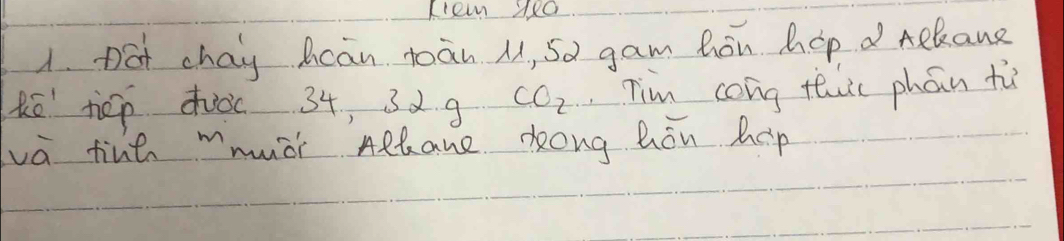 1. Đốt cháy hoàn toàn 11,52 gam hỗn hợp 2 Alkane
kế tiếp được 34,32 g CO₂. Tìm công thức phân tử
và tính m muối Alkane trong hỗn hợp